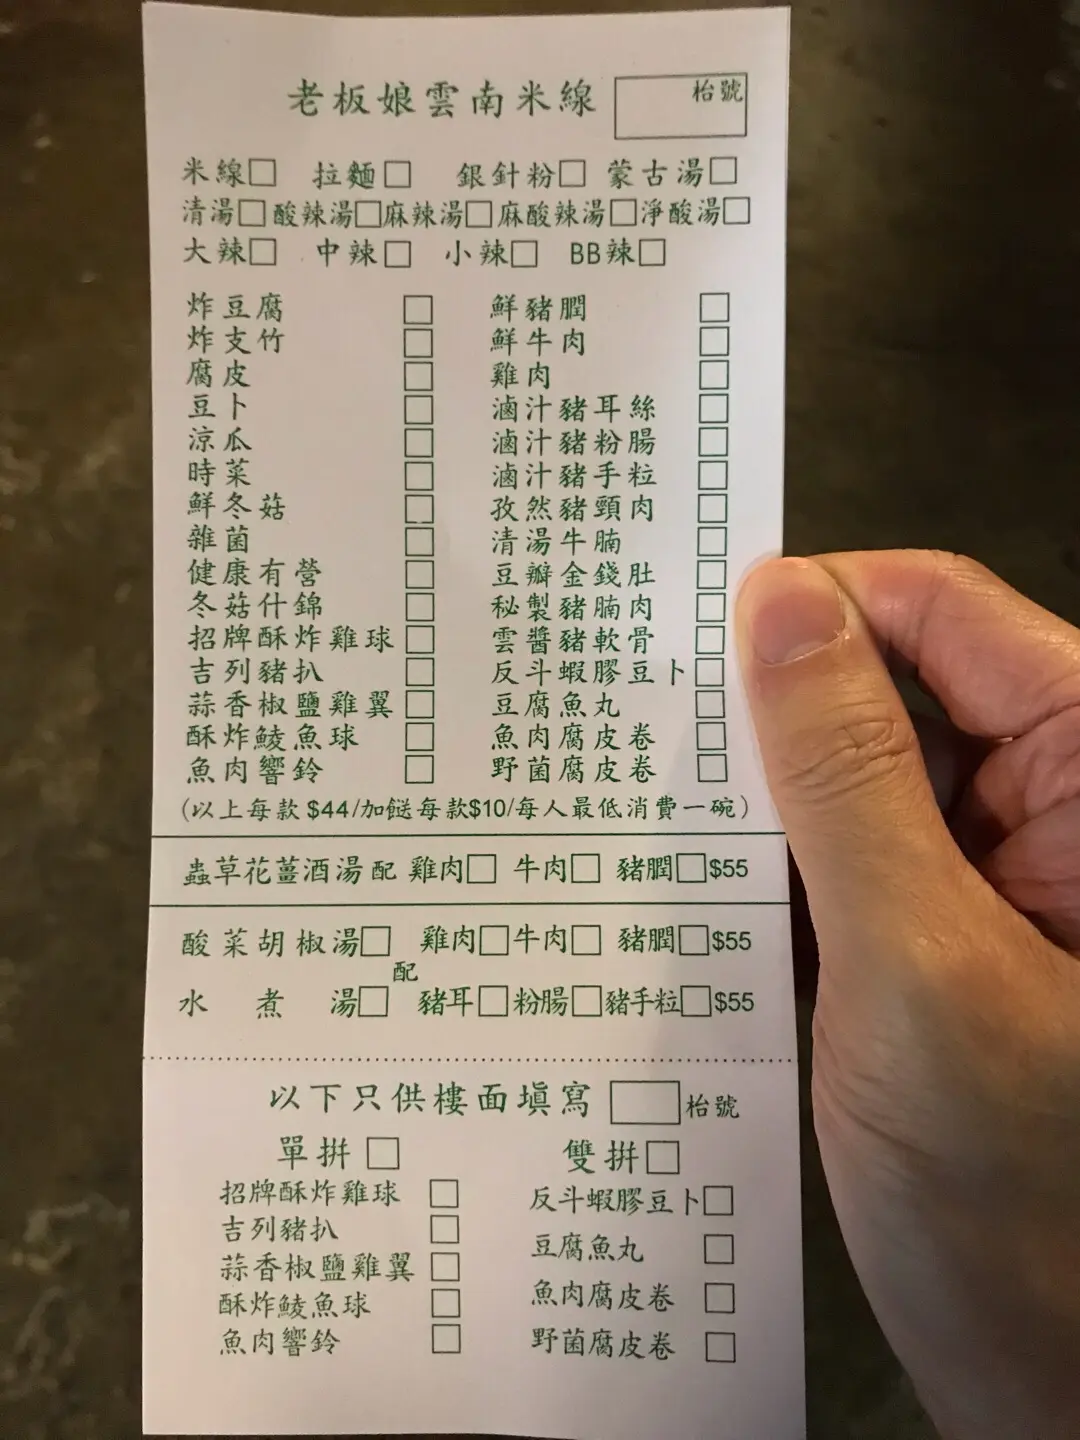 老板娘雲南米線 枱號
米線□ 拉麵□ 銀針粉□ 蒙古湯□
清湯□ 酸辣湯□ 麻辣湯□ 麻酸辣湯□ 淨酸湯□
大辣□ 中辣□ 小辣□ BB辣□
炸豆腐 □ 鮮豬膶 □
炸支竹 □ 鮮牛肉 □
腐皮 □ 雞肉 □
豆卜 □ 滷汁豬耳絲 □
涼瓜 □ 滷汁豬粉腸 □
時菜 □ 滷汁豬手粒 □
鮮冬菇 □ 孜然豬頸肉 □
雜菌 □ 清湯牛腩 □
健康有營 □ 豆瓣金錢肚 □
冬菇什錦 □ 秘製豬腩肉 □
招牌酥炸雞球 □ 雲醬豬軟骨 □
吉列豬扒 □ 反斗蝦膠豆卜 □
蒜香椒鹽雞翼 □ 豆腐魚丸 □
酥炸鯪魚球 □ 魚肉腐皮卷 □
魚肉響鈴 □ 野菌腐皮卷 □
(以上每款 $44/加餸每款$10/每人最低消費一碗)
蟲草花薑酒湯 配 雞肉□ 牛肉□ 豬膶□ $55
酸菜胡椒湯□ 雞肉□ 牛肉□ 豬膶□ $55
配
水煮湯□ 豬耳□ 粉腸□ 豬手粒□ $55
以下只供樓面填寫 枱號
單拼 □ 雙拼 □
招牌酥炸雞球 □ 反斗蝦膠豆卜 □
吉列豬扒 □ 豆腐魚丸 □
蒜香椒鹽雞翼 □ 魚肉腐皮卷 □
酥炸鯪魚球 □ 野菌腐皮卷 □
魚肉響鈴 □